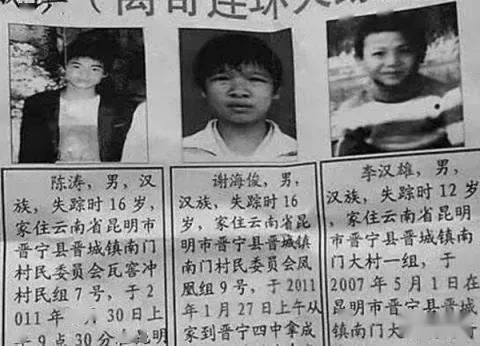 （离奇连环失
陈涛，男，汉
族，失踪时16岁，
家住云南省昆明市
晋宁县晋城镇南门
村民委员会瓦窑冲
村民组7号，于2
011年 月30日上
9点30分 昆明
谢海俊，男，
汉族，失踪时16
岁，家住云南省昆
明市晋宁县晋城镇
南门村民委员会凤
凰组9号，于2011
年1月27日上午从
家到晋宁四中拿成
李汉雄，男，
汉族，失踪时12岁，
家住云南省昆明市
晋宁县晋城镇南
门大村一组，于
2007年5月1日在
昆明市晋宁县晋城
镇南门大